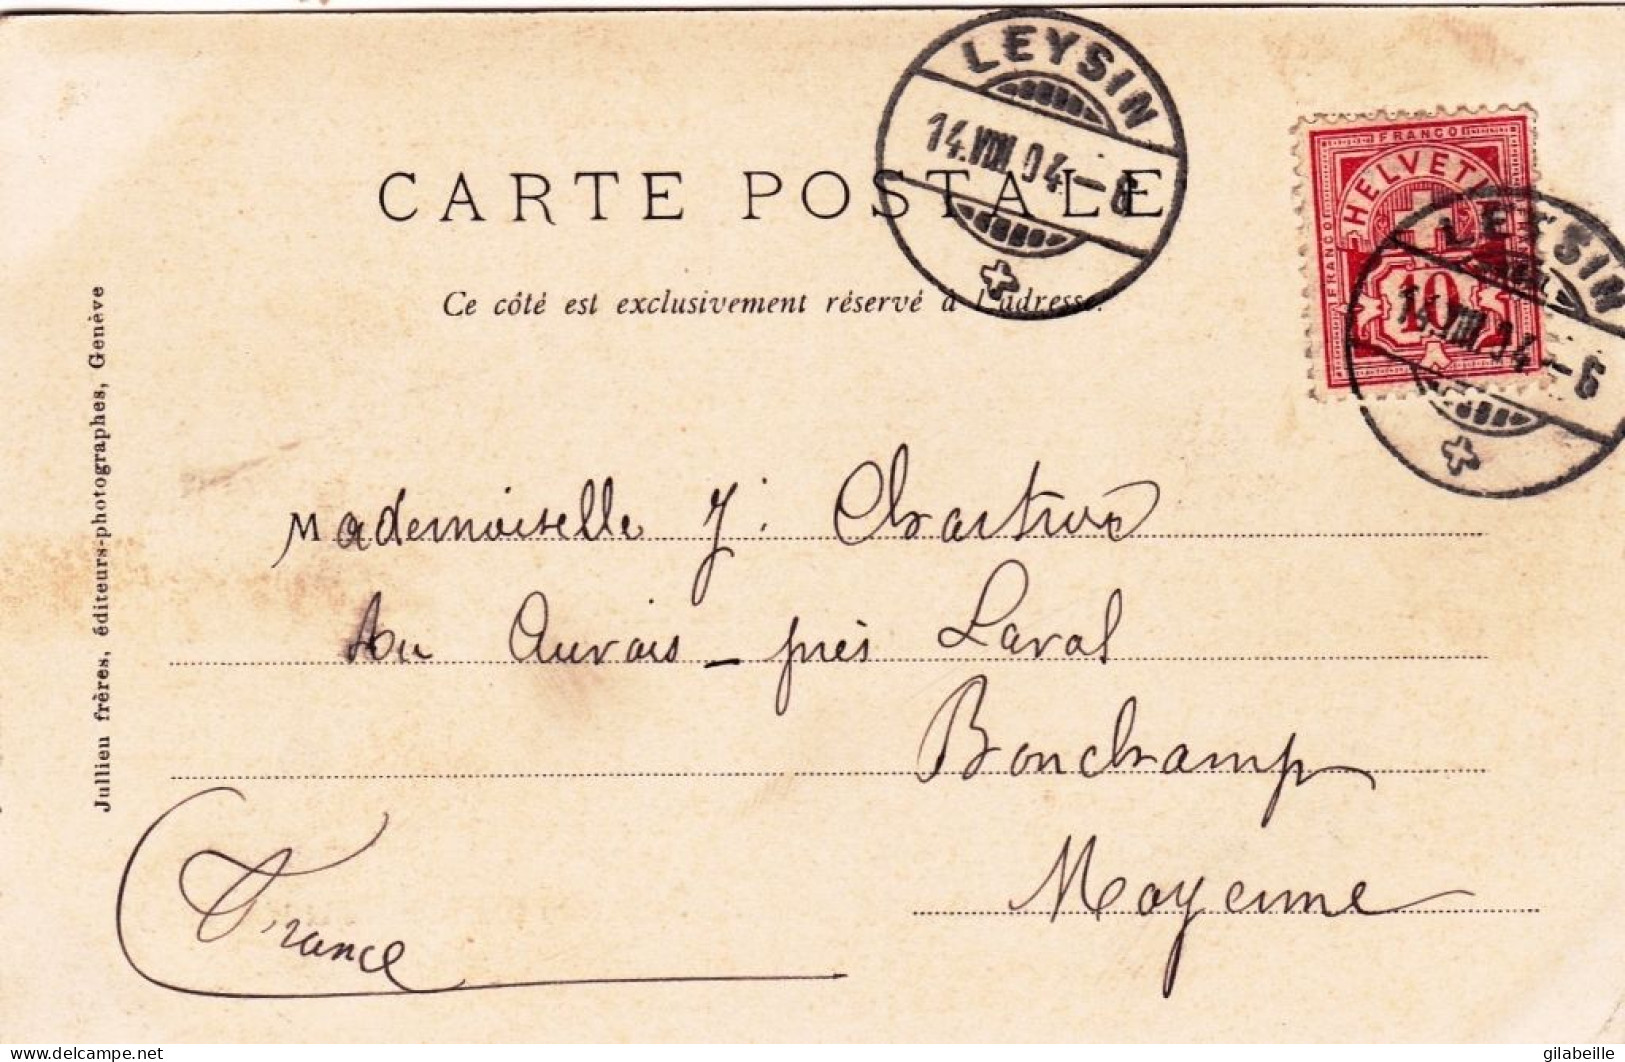 LEYSIN
14.VIII.04—6
FRANCO
HELVETIA
FRANCO
10
LEYSIN
14.VIII.04—6
CARTE POSTALE
Ce côté est exclusivement réservé à l'adresse.
Jullien frères, éditeurs-photographes, Genève
Mademoiselle J. Chartrer
Au Aurais – près Laval
Bonchamp
Mayenne
France
delcampe.net
gilabeille